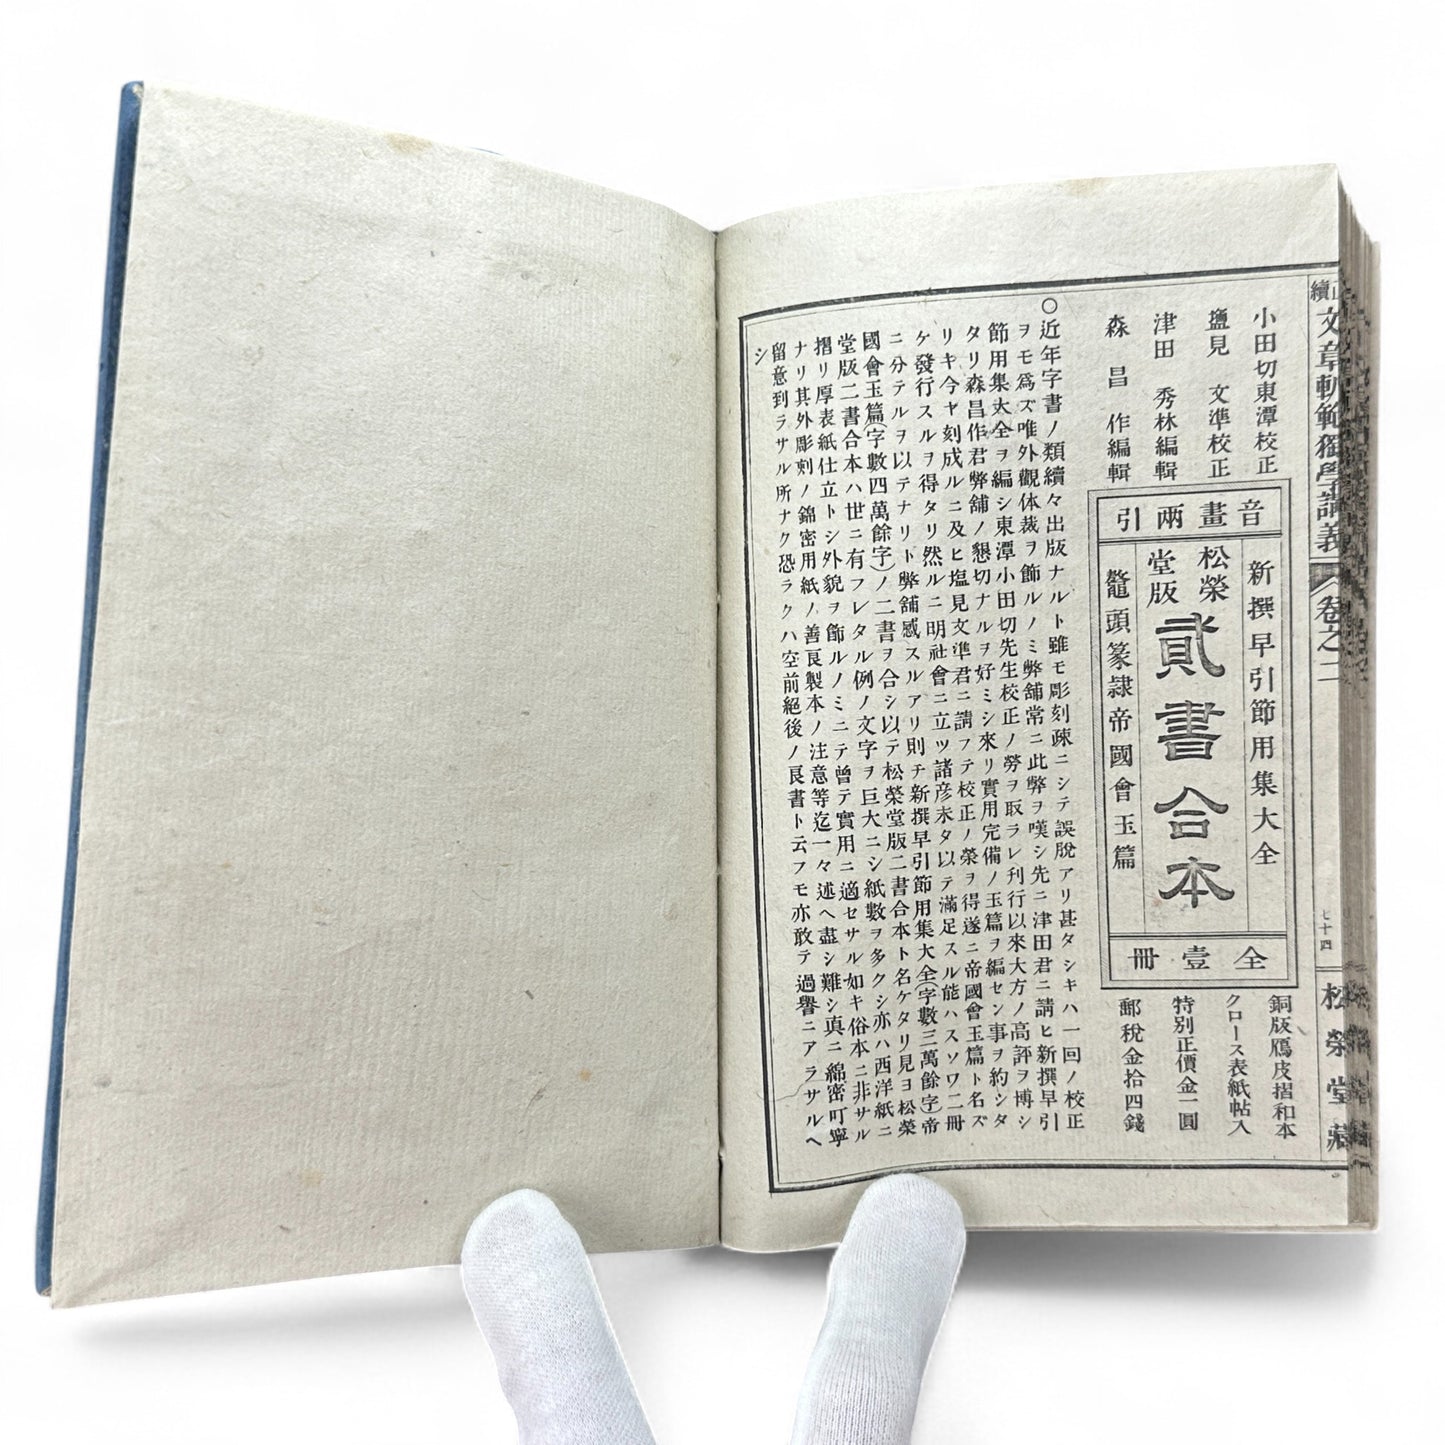 正續文章軌範獨學講義
卷之二
七十四
松榮堂藏
小田切東潭校正
鹽見文準校正
津田秀林編輯
森昌作編輯
音畫兩引
新撰早引節用集大全
松榮堂版
貳書合本
鼇頭篆隷帝國會玉篇
全壹冊
銅版鴈皮摺和本
クロース表紙帖入
特別正價金一圓
郵稅金拾四錢
○近年字書ノ類續々出版ナルト雖モ彫刻疎ニシテ誤脫アリ甚タシキハ一回ノ校正
ヲモ爲ズ唯外觀体裁ヲ飾ルノミ弊舖常ニ此弊ヲ嘆シ先ニ津田君ニ請ヒ新撰早引
節用集大全ヲ編シ東潭小田切先生校正ノ勞ヲ取ラレ刊行以來大方ノ高評ヲ博シ
タリ森昌作君弊舖ノ懇切ナルヲ好ミシ來リ實用完備ノ玉篇ヲ編セン事ヲ約シタ
リキ今ヤ刻成ルニ及ヒ塩見文準君ニ請フテ校正ノ榮ヲ得遂ニ帝國會玉篇ト名ズ
ケ發行スルヲ得タリ然ルニ明社會ニ立ツ諸彦未タ以テ滿足スル能ハスソワ二冊
ニ分テルヲ以テナリト弊舖感スルアリ則チ新撰早引節用集大全(字數三萬餘字)帝
國會玉篇(字數四萬餘字)ノ二書ヲ合シ以テ松榮堂版二書合本ト名ケタリ見ヨ松榮
堂版二書合本ハ世ニ有フレタル例ノ文字ヲ巨大ニシ紙數ヲ多クシ亦ハ西洋紙ニ
摺リ厚表紙仕立トシ外貌ヲ飾ルノミニテ曾テ實用ニ適セサル如キ俗本ニ非サル
ナリ其外彫刻ノ錦密用紙ノ善良製本ノ注意等迄一々述ヘ盡シ難シ真ニ綿密叮寧
留意到ラサル所ナク恐ラクハ空前絕後ノ良書ト云フモ亦敢テ過譽ニアラサルヘ
シ